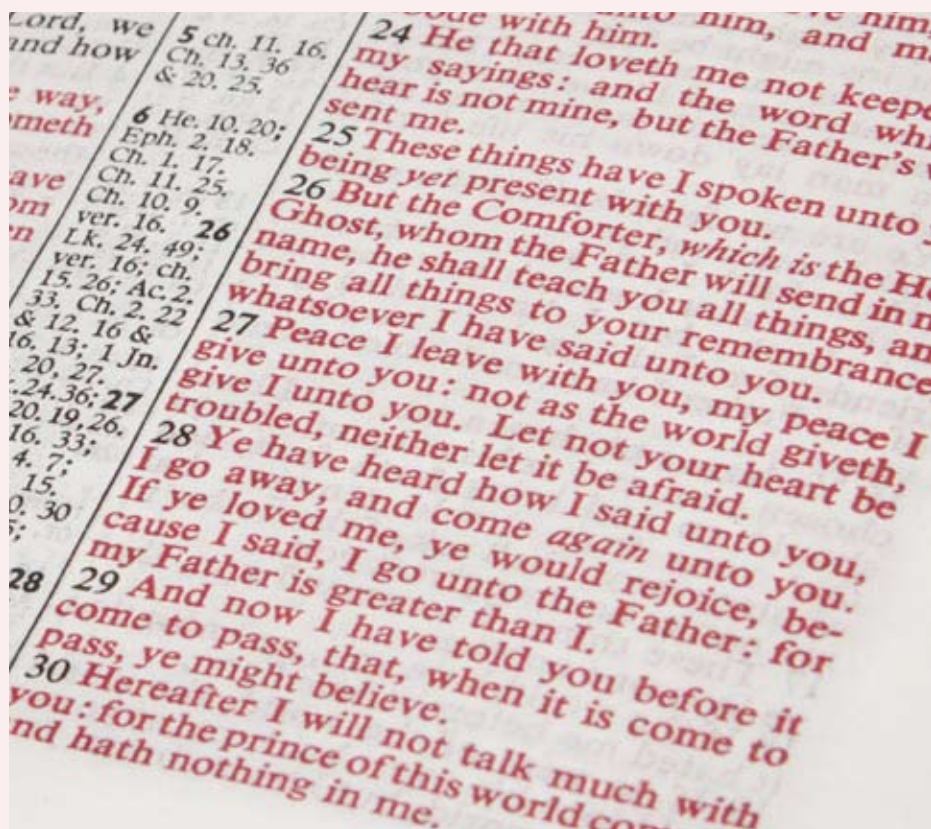 Lord, we
and how
way,
ometh
ave
om
en
5 ch. 11. 16.
Ch. 13. 36
& 20. 25.
6 He. 10. 20;
Eph. 2. 18.
Ch. 1. 17.
Ch. 11. 25.
Ch. 10. 9.
ver. 16. 26
Lk. 24. 49;
ver. 16; ch.
15. 26; Ac. 2.
33. Ch. 2. 22
& 12. 16 &
16. 13; 1 Jn.
20, 27.
24. 36; 27
20. 19, 26.
16. 33;
4. 7;
15.
30
28
unto him, and
with him.
24 He that loveth me not
my sayings: and the word
hear is not mine, but the Father's
sent me.
25 These things have I spoken unto
being yet present with you.
26 But the Comforter, which is the
Ghost, whom the Father will send in
name, he shall teach you all things,
bring all things to your remembrance
whatsoever I have said unto you.
27 Peace I leave with you, my peace I
give unto you: not as the world giveth,
give I unto you. Let not your heart be
troubled, neither let it be afraid.
28 Ye have heard how I said unto you,
I go away, and come again unto you.
If ye loved me, ye would rejoice, be-
cause I said, I go unto the Father: for
my Father is greater than I.
29 And now I have told you before it
come to pass, that, when it is come to
pass, ye might believe.
30 Hereafter I will not talk much with
you: for the prince of this world
nd hath nothing in me.